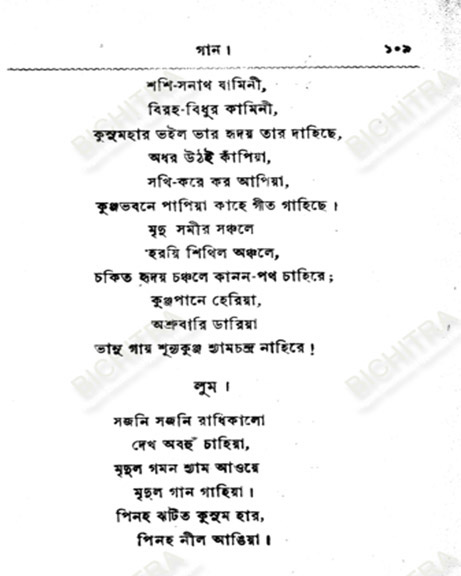 গান ।
১০৯
শশি-সনাথ যামিনী,
বিরহ-বিধুর কামিনী,
কুসুমহার ভইল ভার হৃদয় তার দাহিছে,
অধর উঠই কাঁপিয়া,
সখি-করে কর আপিয়া,
কুঞ্জভবনে পাপিয়া কাহে গীত গাহিছে ।
মৃদু সমীর সঞ্চলে
হরয়ি শিথিল অঞ্চলে,
চকিত হৃদয় চঞ্চলে কানন-পথ চাহিরে ;
কুঞ্জপানে হেরিয়া,
অশ্রুবারি ডারিয়া
ভানু গায় শূন্যকুঞ্জ শ্যামচন্দ্র নাহিরে !
লুম ।
সজনি সজনি রাধিকালো
দেখ অবহুঁ চাহিয়া,
মৃদুল গমন শ্যাম আওয়ে
মৃদুল গান গাহিয়া ।
পিনহ ঝটিত কুসুম হার,
পিনহ নীল আঙিয়া ।
BICHITRA
BICHITRA
BICHITRA
BICHITRA